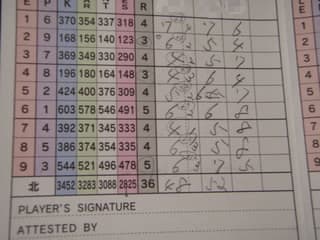 E P K T S R
1 6 370 354 337 318 4 7 7 6
2 9 168 156 140 123 3 6 5 4
3 7 369 349 330 290 4 4 5 7
4 8 196 180 164 148 3 4 6 4
5 2 424 400 376 309 4 5 7
6 1 603 578 546 491 5 6 6 8
7 4 392 371 345 333 4 4 5 8
8 5 386 374 354 335 4 6 5 8
9 3 544 521 496 478 5 6 7 5
北 3452 3283 3088 2825 36 48 52
PLAYER'S SIGNATURE
ATTESTED BY